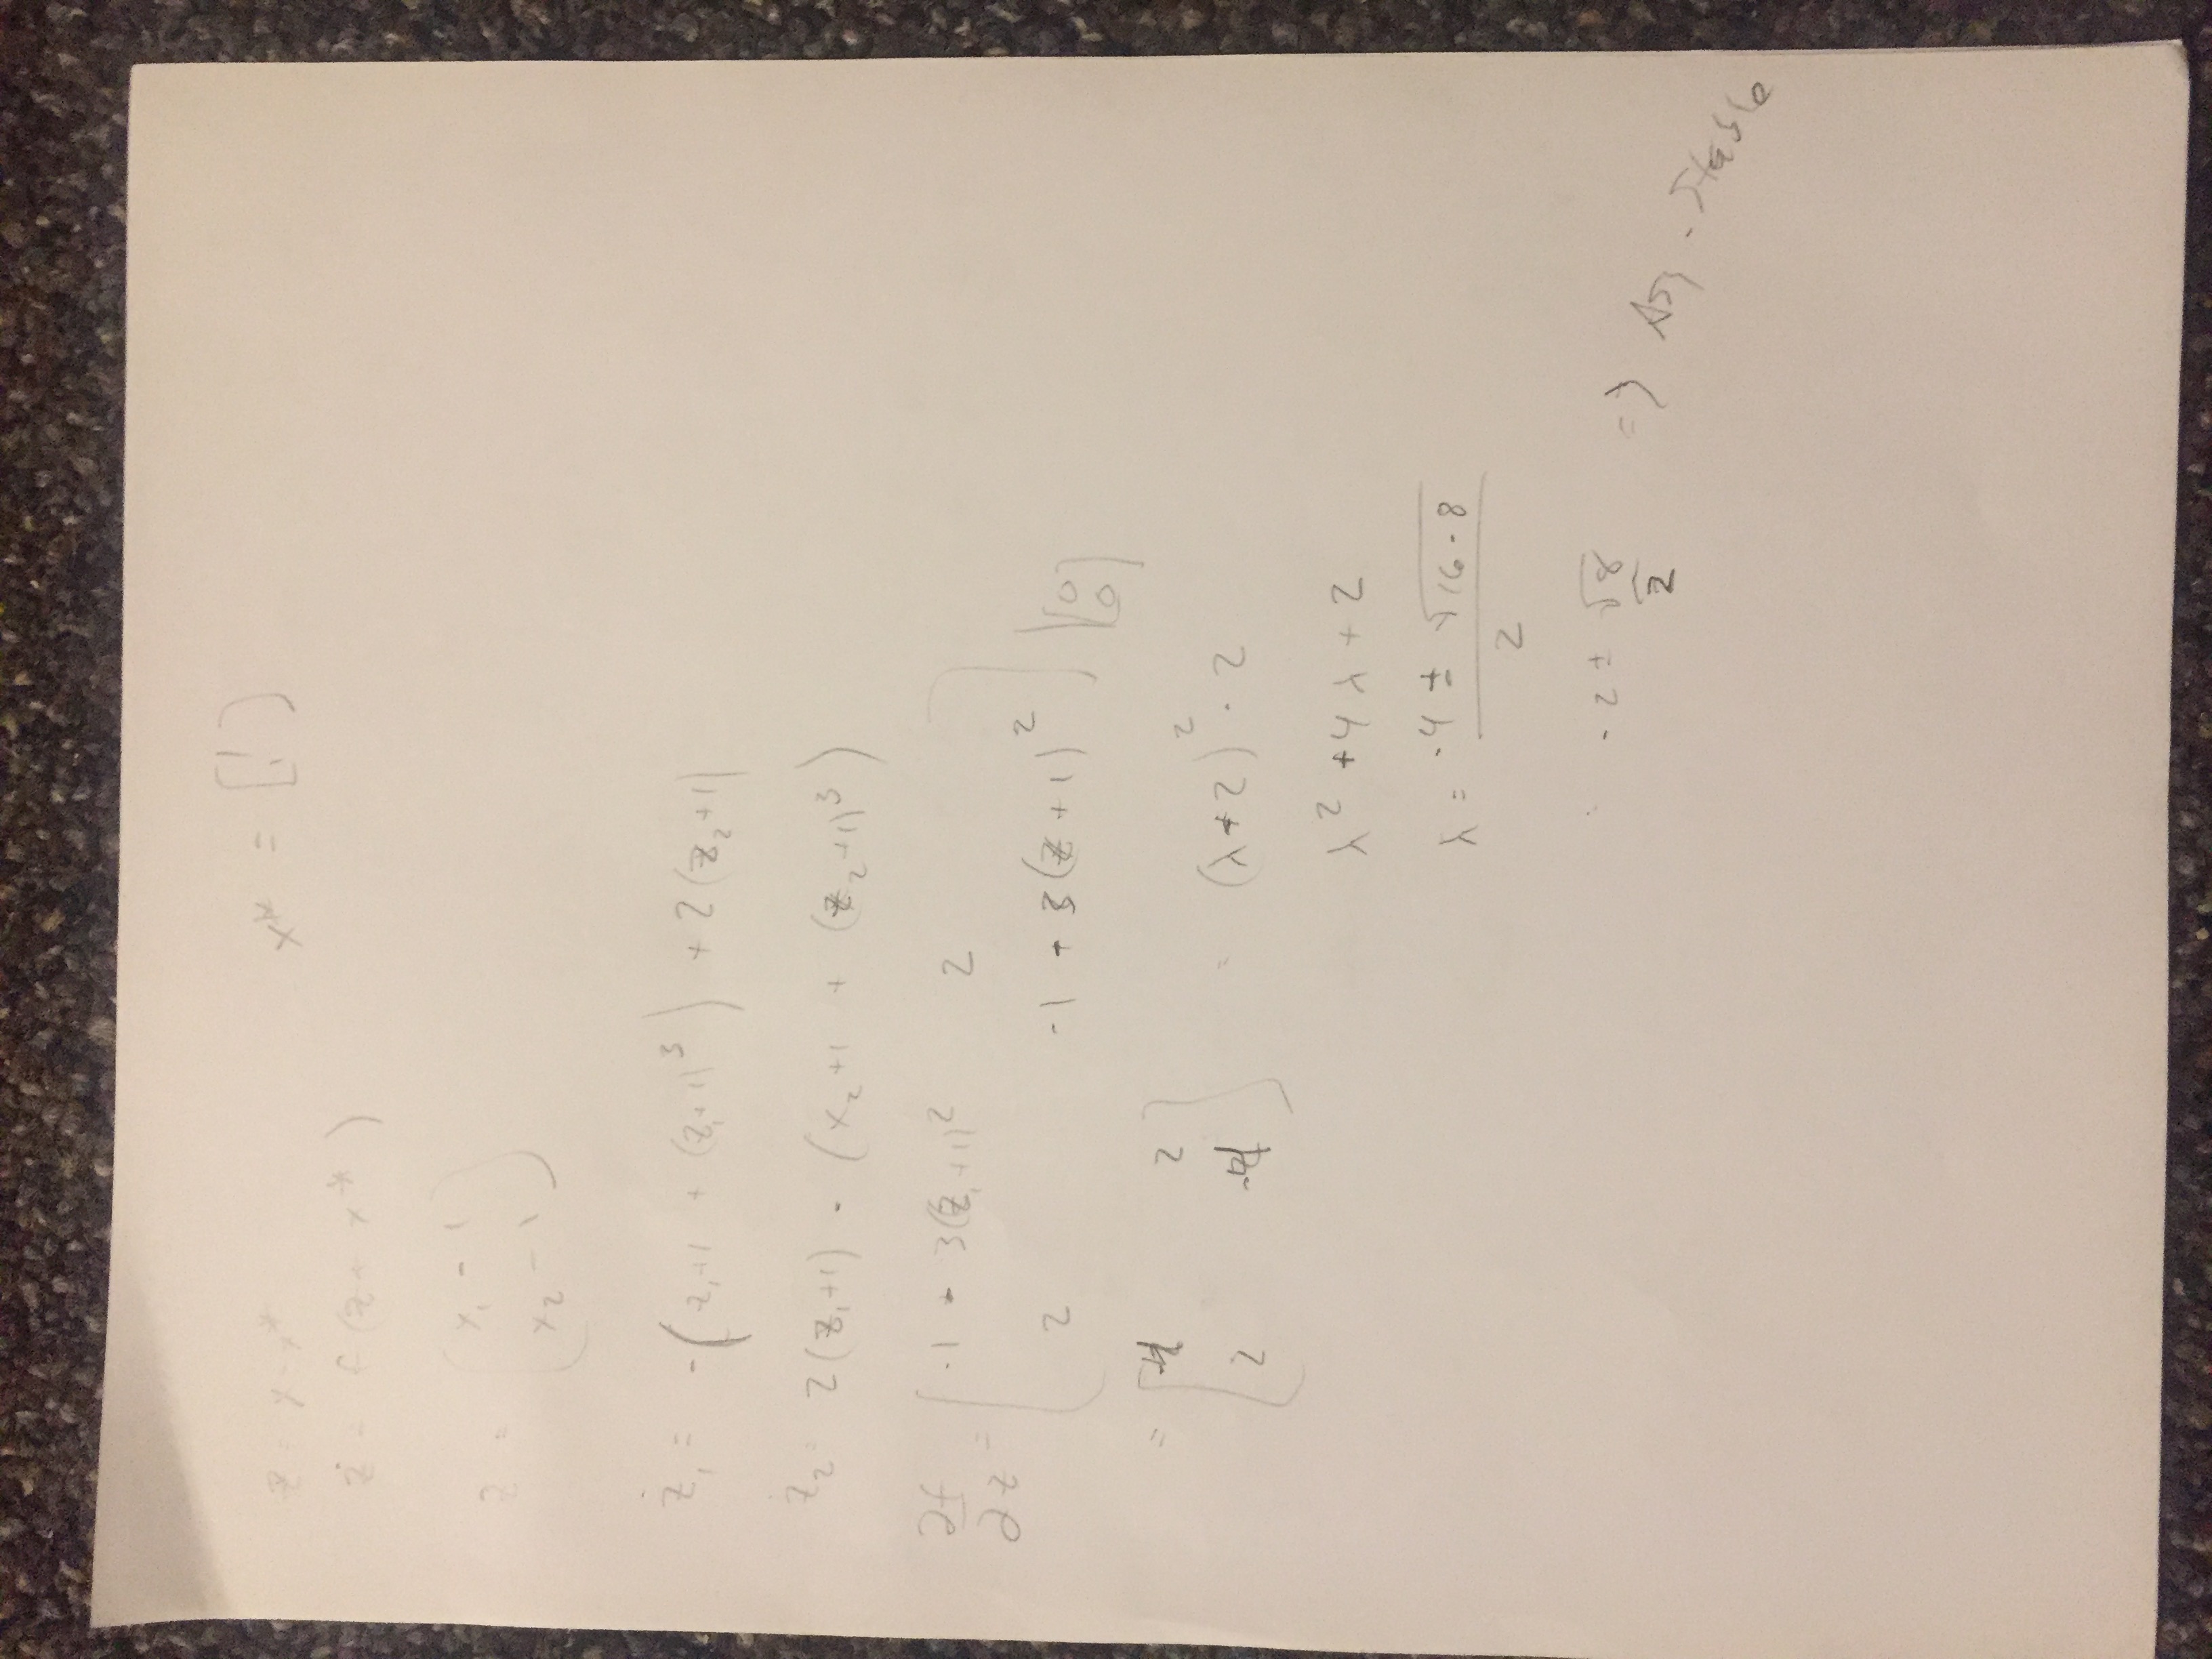 z = x - x*
x* = [1 1]
ż = f(z + x*)
z = (x₁ - 1
x₂ - 1)
ż₁ = -(z₁+1 + (z₁+1)³) + 2(z₂+1)
ż₂ = 2(z₁+1) - (x₂+1 + (z₂+1)³)
∂f/∂z = [-1 - 3(z₁+1)² 2
2 -1 - 3(z+1)²] |[0 0]
= [-4 2
2 -4] = (λ+2)² - 2
λ² + 4λ + 2
λ = (-4 ± √(16-8))/2
= -2 ± √8/2 => Asy. Stable